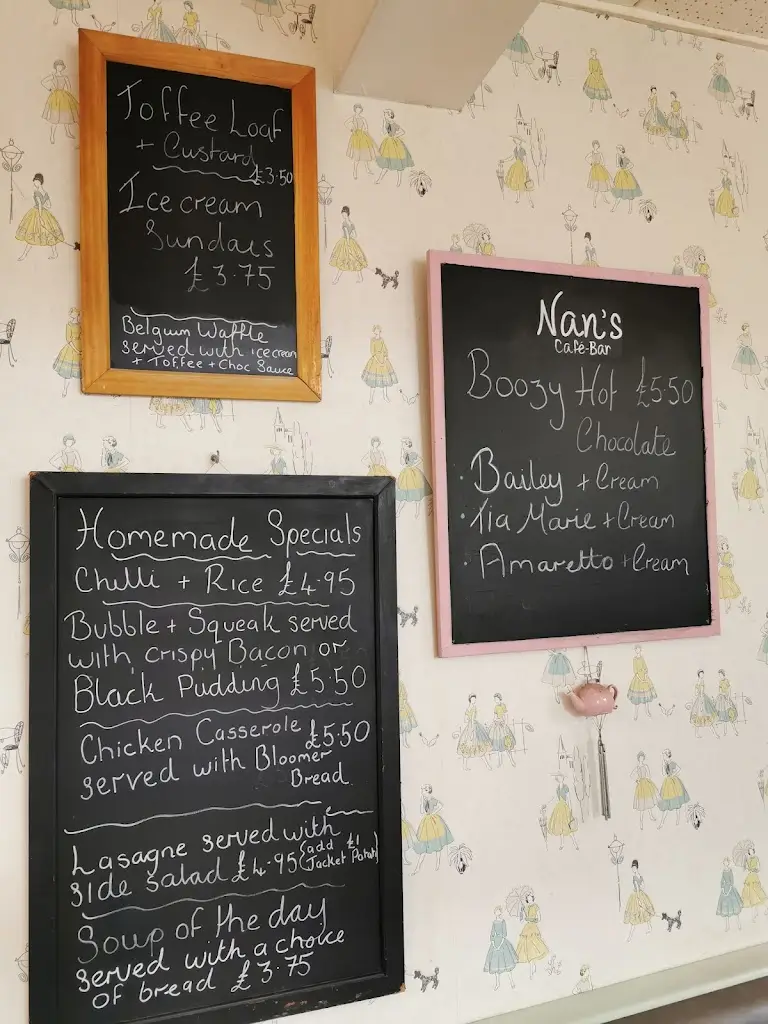 Toffee Loaf
+ Custard
£3.50
Ice cream
Sundaes
£3.75
Belgium Waffle
served with icecream
+ Toffee + Choc Sauce
Nan's
Café-Bar
Boozy Hot £5.50
Chocolate
· Bailey + Cream
· Tia Marie + Cream
· Amaretto + Cream
Homemade Specials
Chilli + Rice £4.95
Bubble + Squeak served
with crispy Bacon or
Black Pudding £5.50
Chicken Casserole £5.50
served with Bloomer
Bread
Lasagne served with
side salad £4.95 (add £1
Jacket Potato)
Soup of the day
served with a choice
of bread £3.75